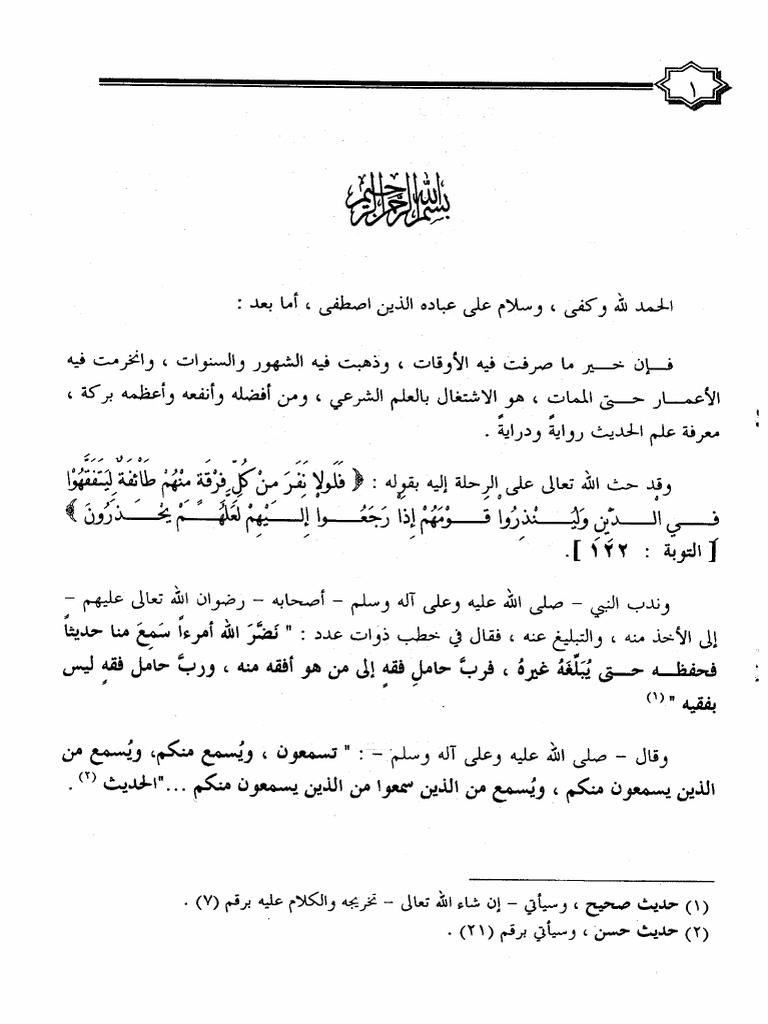 ١
بسم الله الرحمن الرحيم
الحمد لله وكفى ، وسلام على عباده الذين اصطفى ، أما بعد :
فإن خير ما صرفت فيه الأوقات ، وذهبت فيه الشهور والسنوات ، وانخرمت فيه
الأعمار حتى الممات ، هو الاشتغال بالعلم الشرعي ، ومن أفضله وأنفعه وأعظمه بركة ،
معرفة علم الحديث روايةً ودرايةً .
وقد حث الله تعالى على الرحلة إليه بقوله : ﴿ فَلَولا نَفَرَ مِنْ كُلِّ فِرْقَةٍ مِنْهُمْ طَائِفَةٌ لِيَتَفَقَّهُوْا
فِي الدِّيْنِ وَلِيُنْذِرُوا قَوْمَهُمْ إِذَا رَجَعُوا إِلَيْهِمْ لَعَلَّهُمْ يَحْذَرُونَ ﴾
[ التوبة : ١٢٢ ].
وندب النبي – صلى الله عليه وعلى آله وسلم – أصحابه – رضوان الله تعالى عليهم –
إلى الأخذ منه ، والتبليغ عنه ، فقال في خطب ذوات عدد : " نَضَّرَ الله أمرءاً سَمِعَ منا حديثاً
فحفظه حتى يُبَلِّغَهُ غيرهُ ، فربَّ حاملِ فقهٍ إلى من هو أفقه منه ، وربَّ حامل فقهٍ ليس
بفقيه "(١)
وقال – صلى الله عليه وعلى آله وسلم – : " تسمعون ، ويُسمع منكم، ويُسمع من
الذين يسمعون منكم ، ويُسمع من الذين سمعوا من الذين يسمعون منكم ..."الحديث (٢) .
(١) حديث صحيح ، وسيأتي – إن شاء الله تعالى – تخريجه والكلام عليه برقم (٧) .
(٢) حديث حسن ، وسيأتي برقم (٢١) .